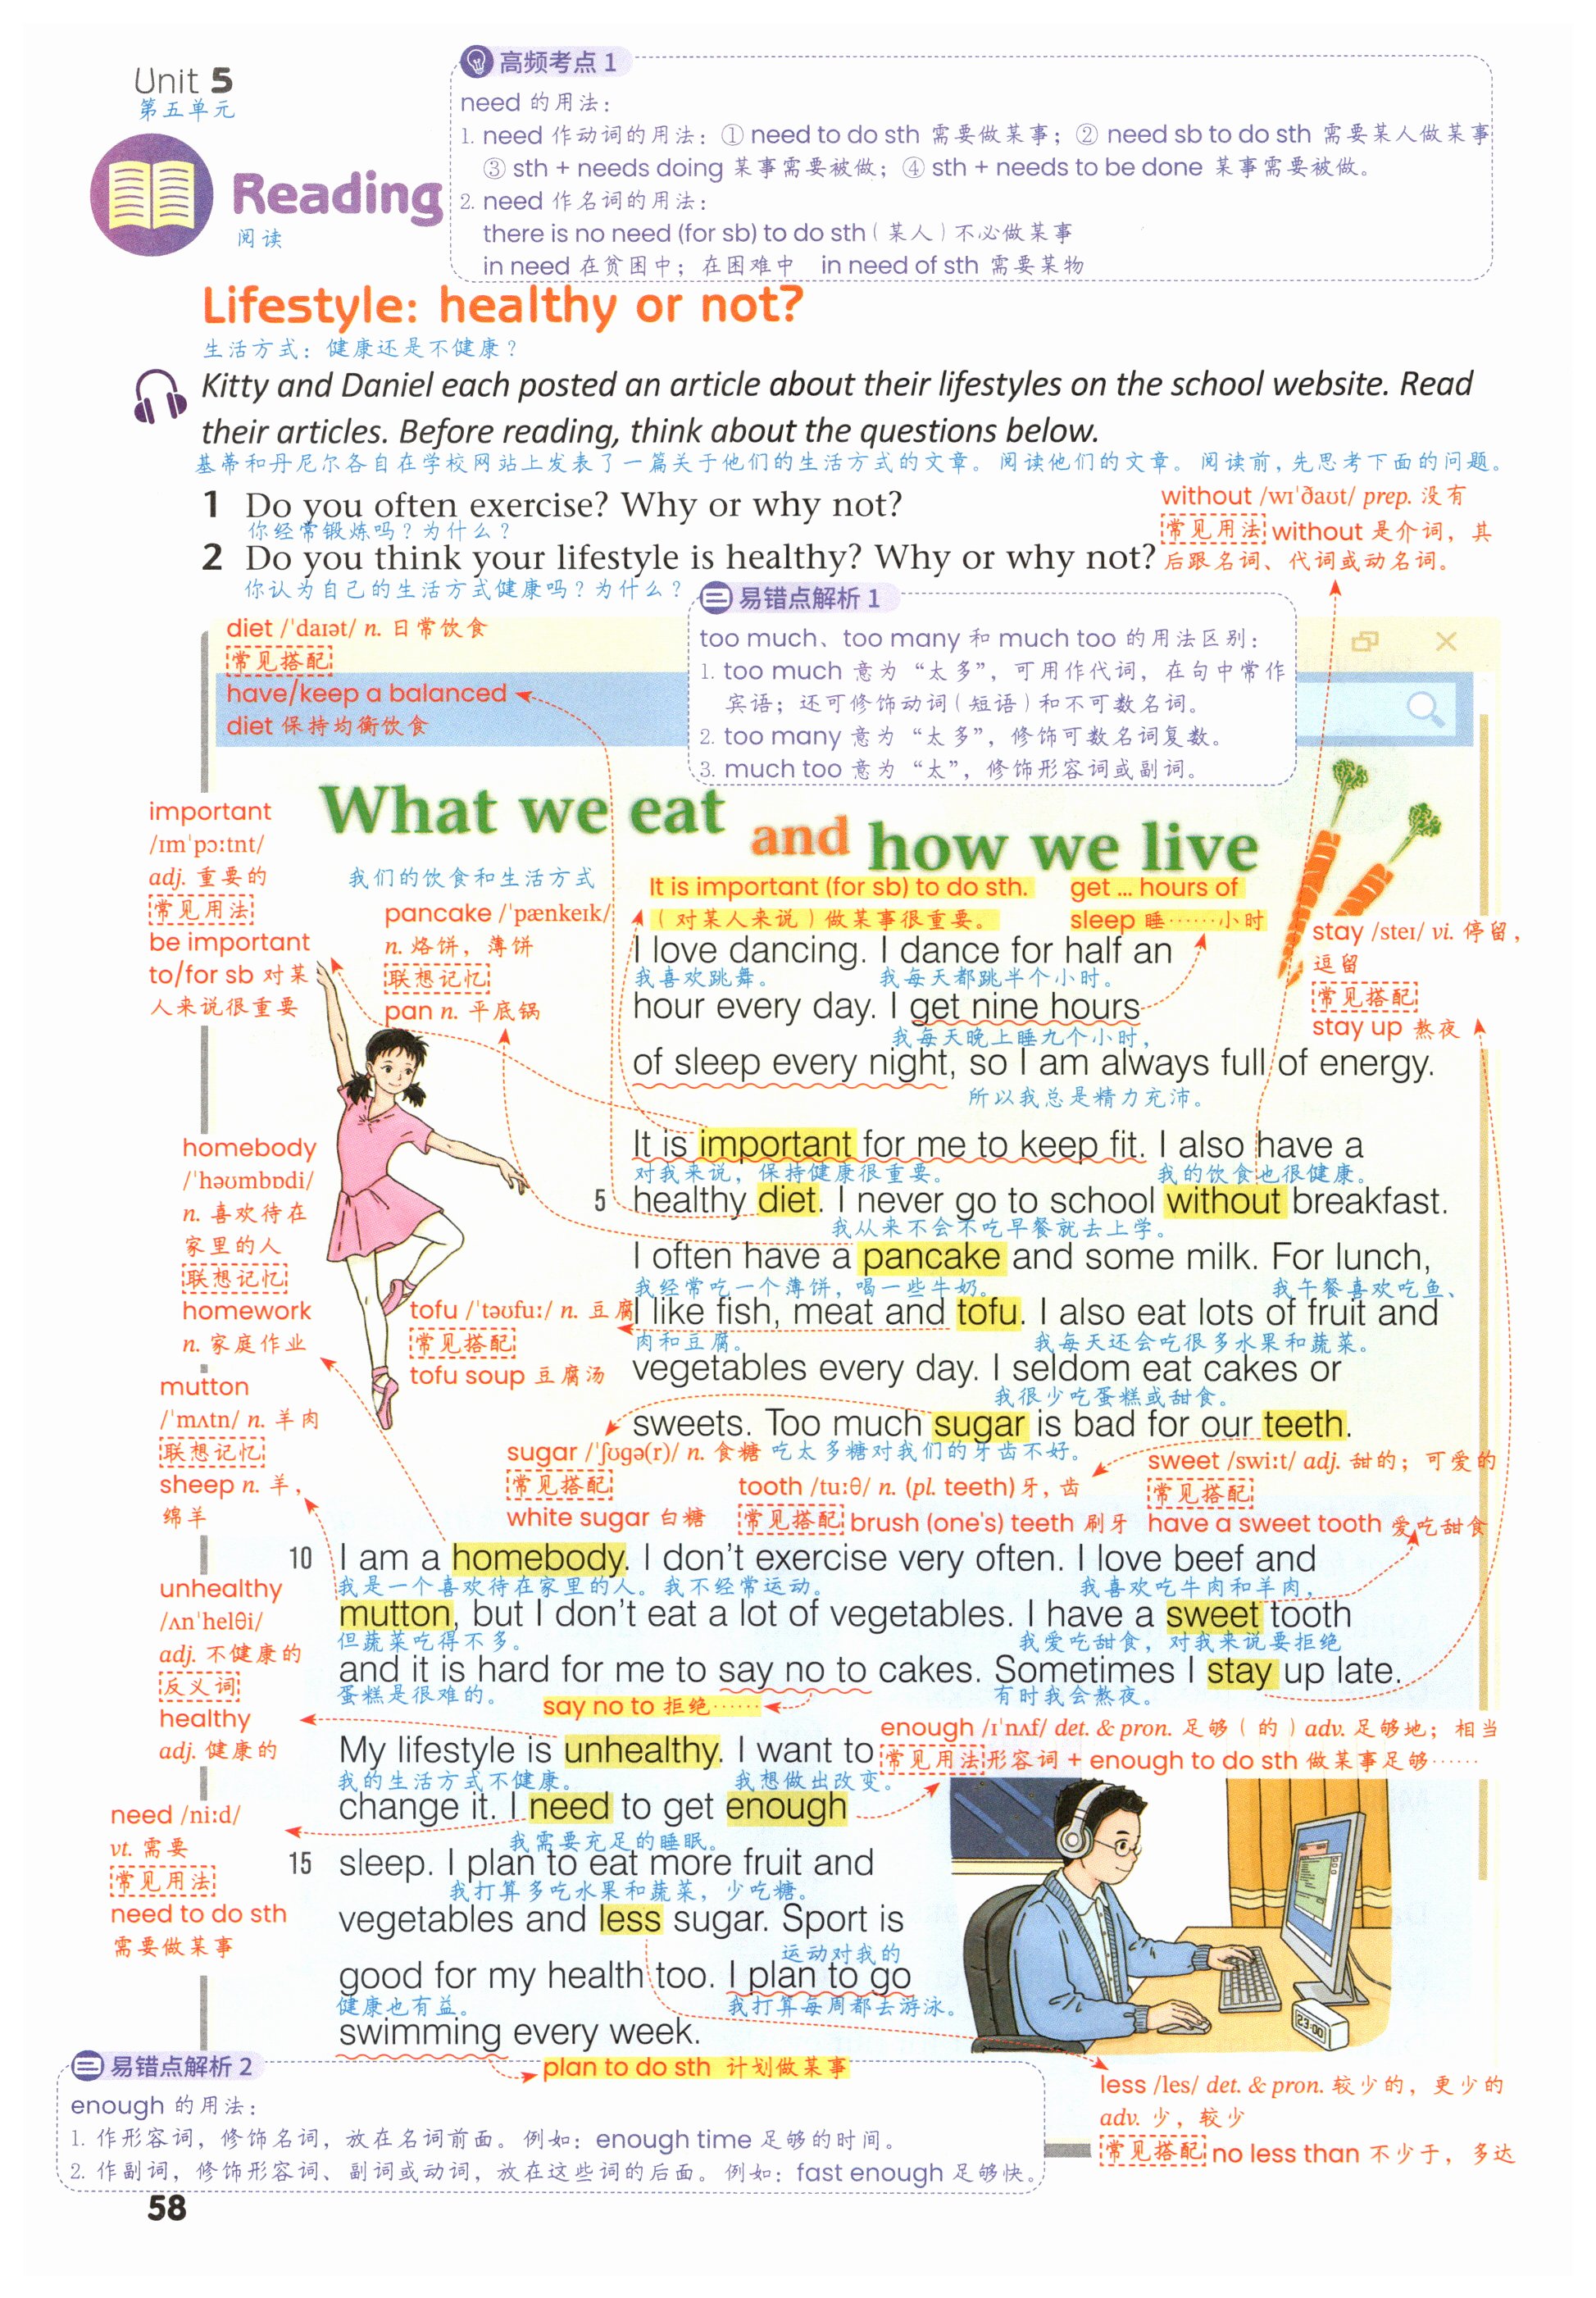 Unit 5
第五单元
Reading
阅读
高频考点 1
need 的用法：
1. need 作动词的用法：① need to do sth 需要做某事；② need sb to do sth 需要某人做某事
③ sth + needs doing 某事需要被做；④ sth + needs to be done 某事需要被做。
2. need 作名词的用法：
there is no need (for sb) to do sth（某人）不必做某事
in need 在贫困中；在困难中 in need of sth 需要某物
Lifestyle: healthy or not?
生活方式：健康还是不健康？
Kitty and Daniel each posted an article about their lifestyles on the school website. Read
their articles. Before reading, think about the questions below.
基蒂和丹尼尔各自在学校网站上发表了一篇关于他们的生活方式的文章。阅读他们的文章。阅读前，先思考下面的问题。
1 Do you often exercise? Why or why not?
你经常锻炼吗？为什么？
2 Do you think your lifestyle is healthy? Why or why not?
你认为自己的生活方式健康吗？为什么？
without /wɪˈðaʊt/ prep. 没有
常见用法 without 是介词，其
后跟名词、代词或动名词。
易错点解析 1
too much、too many 和 much too 的用法区别：
1. too much 意为“太多”，可用作代词，在句中常作
宾语；还可修饰动词（短语）和不可数名词。
2. too many 意为“太多”，修饰可数名词复数。
3. much too 意为“太”，修饰形容词或副词。
diet /ˈdaɪət/ n. 日常饮食
常见搭配
have/keep a balanced
diet 保持均衡饮食
What we eat and how we live
我们的饮食和生活方式
important
/ɪmˈpɔːtnt/
adj. 重要的
常见用法
be important
to/for sb 对某
人来说很重要
pancake /ˈpænkeɪk/
n. 烙饼，薄饼
联想记忆
pan n. 平底锅
It is important (for sb) to do sth.
（对某人来说）做某事很重要。
get ... hours of
sleep 睡……小时
stay /steɪ/ vi. 停留，
逗留
常见搭配
stay up 熬夜
I love dancing. I dance for half an
我喜欢跳舞。 我每天都跳半个小时。
hour every day. I get nine hours
我每天晚上睡九个小时，
of sleep every night, so I am always full of energy.
所以我总是精力充沛。
It is important for me to keep fit. I also have a
对我来说，保持健康很重要。 我的饮食也很健康。
5 healthy diet. I never go to school without breakfast.
我从来不会不吃早餐就去上学。
I often have a pancake and some milk. For lunch,
我经常吃一个薄饼，喝一些牛奶。 我午餐喜欢吃鱼、
I like fish, meat and tofu. I also eat lots of fruit and
肉和豆腐。 我每天还会吃很多水果和蔬菜。
vegetables every day. I seldom eat cakes or
我很少吃蛋糕或甜食。
sweets. Too much sugar is bad for our teeth.
吃太多糖对我们的牙齿不好。
homebody
/ˈhəʊmbɒdi/
n. 喜欢待在
家里的人
联想记忆
homework
n. 家庭作业
tofu /ˈtəʊfuː/ n. 豆腐
常见搭配
tofu soup 豆腐汤
mutton
/ˈmʌtn/ n. 羊肉
联想记忆
sheep n. 羊，
绵羊
sugar /ˈʃʊgə(r)/ n. 食糖
常见搭配
white sugar 白糖
tooth /tuːθ/ n. (pl. teeth) 牙，齿
常见搭配 brush (one's) teeth 刷牙
sweet /swiːt/ adj. 甜的；可爱的
常见搭配
have a sweet tooth 爱吃甜食
10 I am a homebody. I don't exercise very often. I love beef and
我是一个喜欢待在家里的人。我不经常运动。 我喜欢吃牛肉和羊肉，
mutton, but I don't eat a lot of vegetables. I have a sweet tooth
但蔬菜吃得不多。 我爱吃甜食，对我来说要拒绝
and it is hard for me to say no to cakes. Sometimes I stay up late.
蛋糕是很难的。 有时我会熬夜。
say no to 拒绝……
unhealthy
/ʌnˈhelθi/
adj. 不健康的
反义词
healthy
adj. 健康的
enough /ɪˈnʌf/ det. & pron. 足够（的）adv. 足够地；相当
常见用法 形容词 + enough to do sth 做某事足够……
My lifestyle is unhealthy. I want to
我的生活方式不健康。 我想做出改变。
change it. I need to get enough
我需要充足的睡眠。
15 sleep. I plan to eat more fruit and
我打算多吃水果和蔬菜，少吃糖。
vegetables and less sugar. Sport is
运动对我的
good for my health too. I plan to go
健康也有益。 我打算每周都去游泳。
swimming every week.
plan to do sth 计划做某事
need /niːd/
vt. 需要
常见用法
need to do sth
需要做某事
23:00
易错点解析 2
enough 的用法：
1. 作形容词，修饰名词，放在名词前面。例如：enough time 足够的时间。
2. 作副词，修饰形容词、副词或动词，放在这些词的后面。例如：fast enough 足够快。
less /les/ det. & pron. 较少的，更少的
adv. 少，较少
常见搭配 no less than 不少于，多达
58